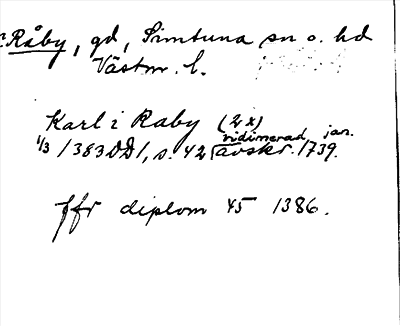 Råby, gd, Simtuna sn o. hd
Västm. l.
Karl i Raby (2 x)
vidimerad jan.
1/3 1383 DD1, s. 42 avskr. 1739.
Jfr diplom 45 1386.